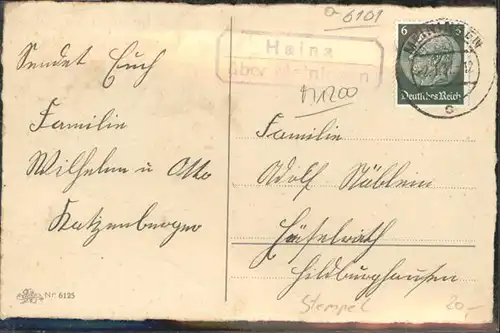 6101
Haina
über Meiningen
MEININGEN
12
c
6 6
Deutsches Reich
Sendet Euch
Familie
Wilhelm u Otto
Katzenberger
Familie
Adolf
Hildburghausen
Nr. 6125
Stempel
20,-